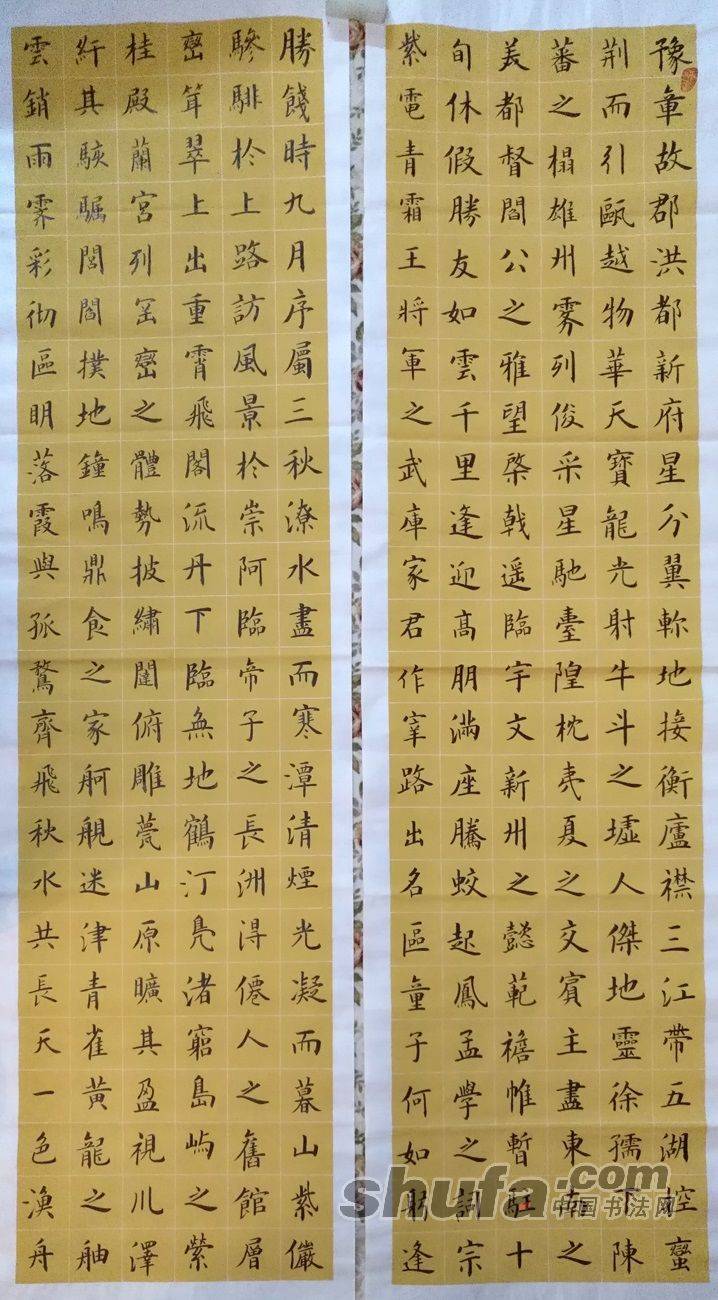 豫章故郡洪都新府星分翼軫地接衡廬襟三江帶五湖控蠻
荆而引甌越物華天寶龍光射牛斗之墟人傑地靈徐孺下陳
蕃之榻雄州霧列俊采星馳臺隍枕夷夏之交賓主盡東南之
美都督閻公之雅望棨戟遥臨宇文新州之懿範襜帷暫駐十
旬休假勝友如雲千里逢迎高朋滿座騰蛟起鳳孟學之詞宗
紫電青霜王將軍之武庫家君作宰路出名區童子何如躬逢
勝餞時九月序屬三秋潦水盡而寒潭清煙光凝而暮山紫儼
驂騑於上路訪風景於崇阿臨帝子之長洲得僊人之舊館層
巒耸翠上出重霄飛閣流丹下臨無地鶴汀鳧渚窮島嶼之縈
桂殿蘭宫列罡巒之體勢披繡闥俯雕甍山原曠其盈視川澤
紆其駭驅閭閻撲地鐘鳴鼎食之家舸舰迷津青雀黃龍之舳
雲銷雨霽彩彻區明落霞與孤鶩齊飛秋水共長天一色漁舟
shufa.com
中国书法网